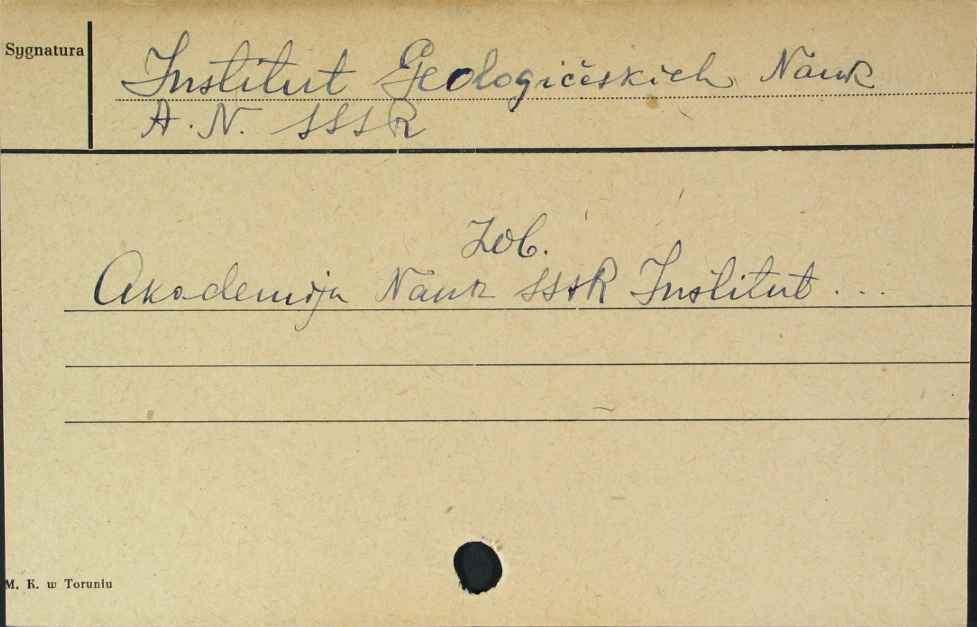 Sygnatura
Institut Geologičeskich Nauk
A. N. SSSR
Zob.
Akademija Nauk SSSR Institut ...
M. K. w Toruniu